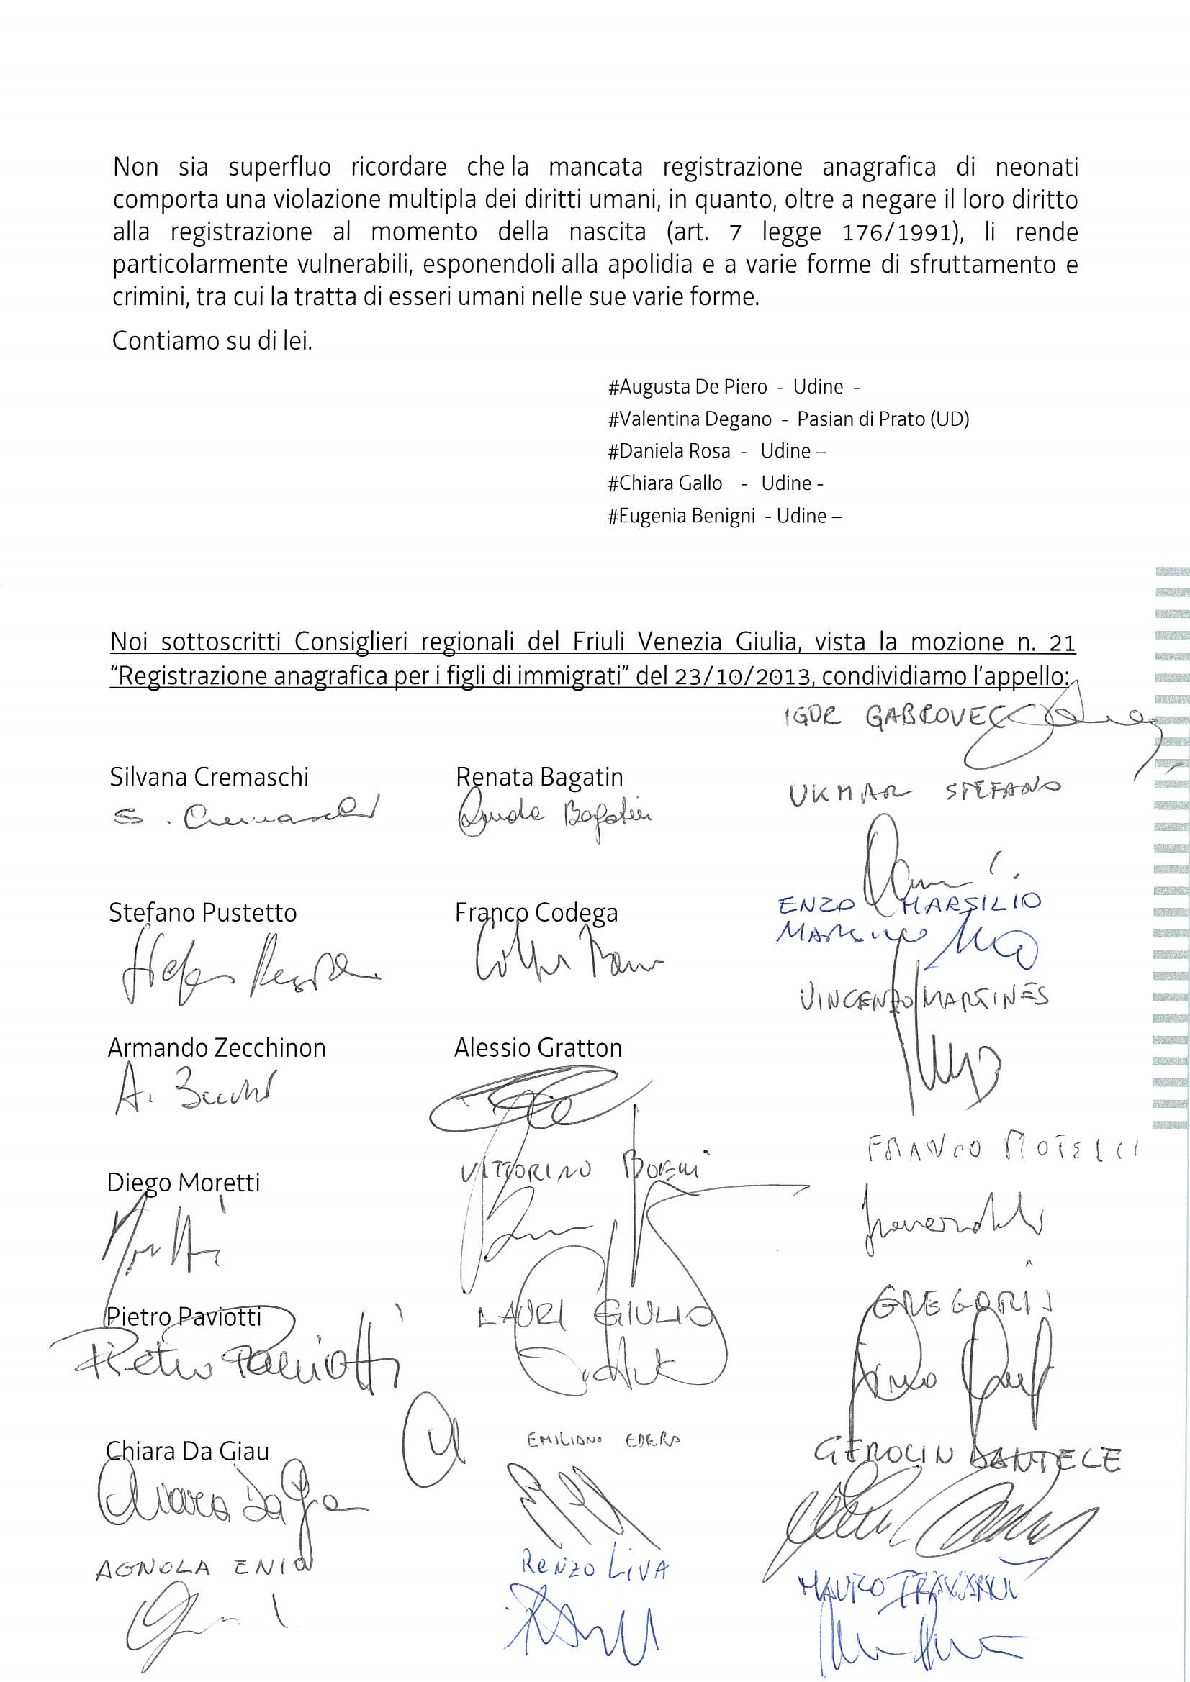 Non sia superfluo ricordare che la mancata registrazione anagrafica di neonati
comporta una violazione multipla dei diritti umani, in quanto, oltre a negare il loro diritto
alla registrazione al momento della nascita (art. 7 legge 176/1991), li rende
particolarmente vulnerabili, esponendoli alla apolidia e a varie forme di sfruttamento e
crimini, tra cui la tratta di esseri umani nelle sue varie forme.
Contiamo su di lei.
#Augusta De Piero - Udine -
#Valentina Degano - Pasian di Prato (UD)
#Daniela Rosa - Udine –
#Chiara Gallo - Udine -
#Eugenia Benigni - Udine –
Noi sottoscritti Consiglieri regionali del Friuli Venezia Giulia, vista la mozione n. 21
“Registrazione anagrafica per i figli di immigrati” del 23/10/2013, condividiamo l'appello:
IGOR GABROVEC
Silvana Cremaschi Renata Bagatin
UKMAR STEFANO
S. Cremaschi
Bagatin
Stefano Pustetto Franco Codega
ENZO MARSILIO
VINCENZO MARTINES
Armando Zecchinon Alessio Gratton
VITTORINO BOEM
Diego Moretti
Pietro Paviotti
LAURI GIULIO
GREGORIS
Pietro Paviotti
EMILIANO EDERA
Chiara Da Giau
GEROLIN DANIELE
Chiara Da Giau
AGNOLA ENIO
RENZO LIVA
MAURO TRAVANUT